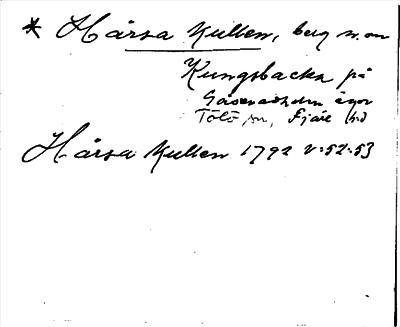 * Hårsa Kullen, berg n.om
Kungsbacka på
ägor
Tölö sn, Fjäre hd
Hårsa Kullen 1792 V:52:53